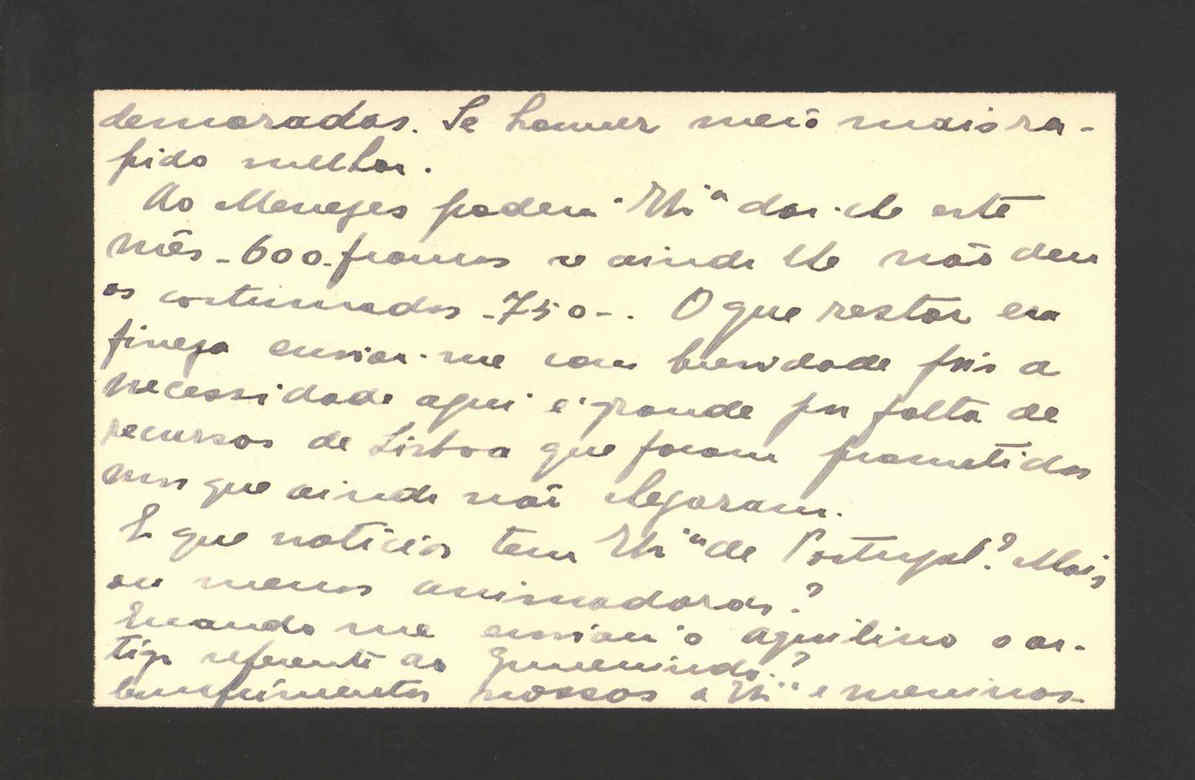 demoradas. Se houver meio mais ra-
pido melhor.
Ao Menezes poderá V. Ex.ª dar-lhe este
mês - 600 - francos se ainda lhe não deu
os costumados - 750 -. O que restar era
fineza enviar-me com brevidade pois a
necessidade aqui é grande por falta de
recursos de Lisboa que foram prometidos
mas que ainda não chegaram.
E que noticias tem V. Ex.ª de Portugal? Mais
ou menos animadoras?
Quando me enviará o Aquilino o ar-
tigo referente ao
Cumprimentos nossos a V. Ex.ª e meninos -